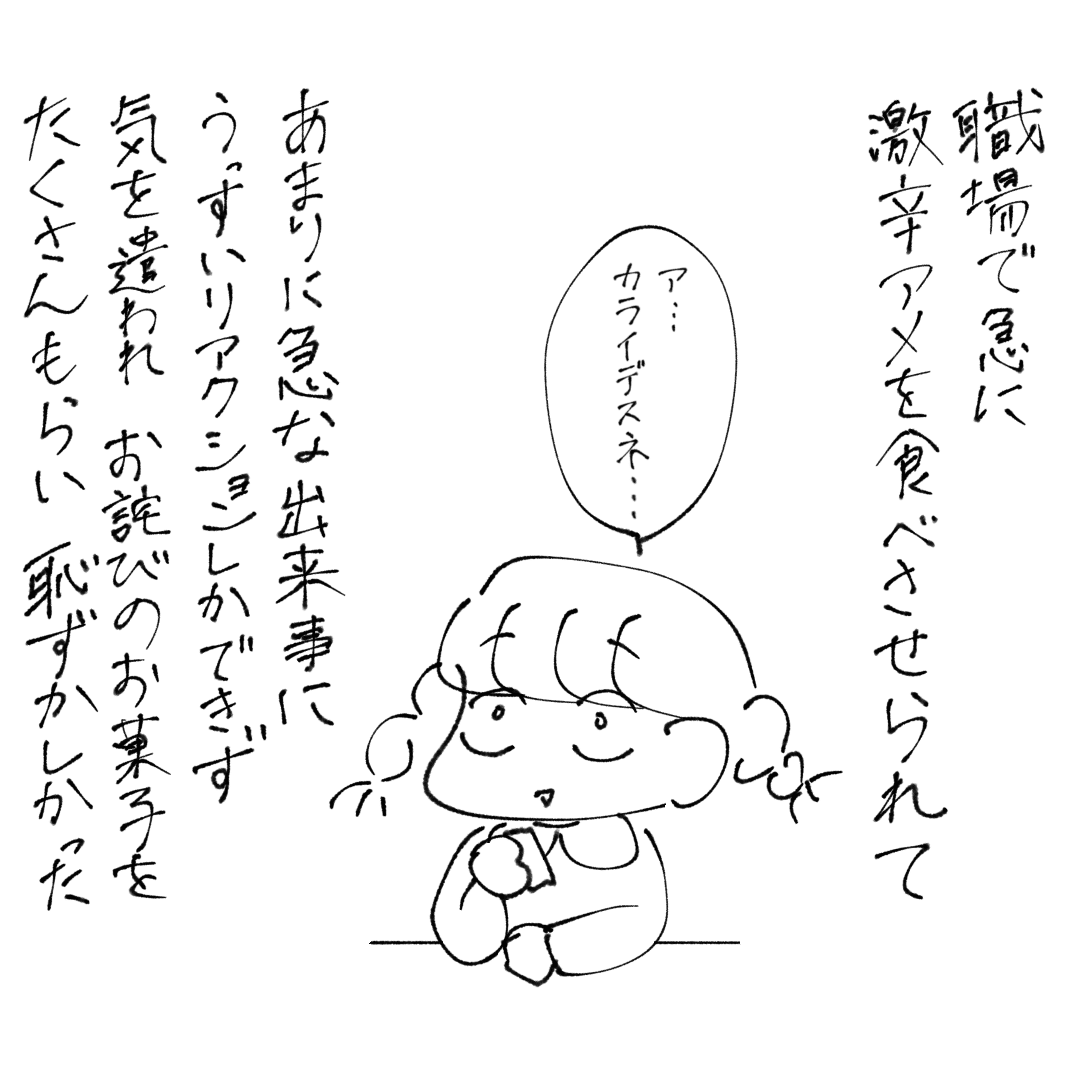 職場で急に
激辛アメを食べさせられて
ア…
カライデスネ…
あまりに急な出来事に
うっすいリアクションしかできず
気を遣われ お詫びのお菓子を
たくさんもらい 恥ずかしかった